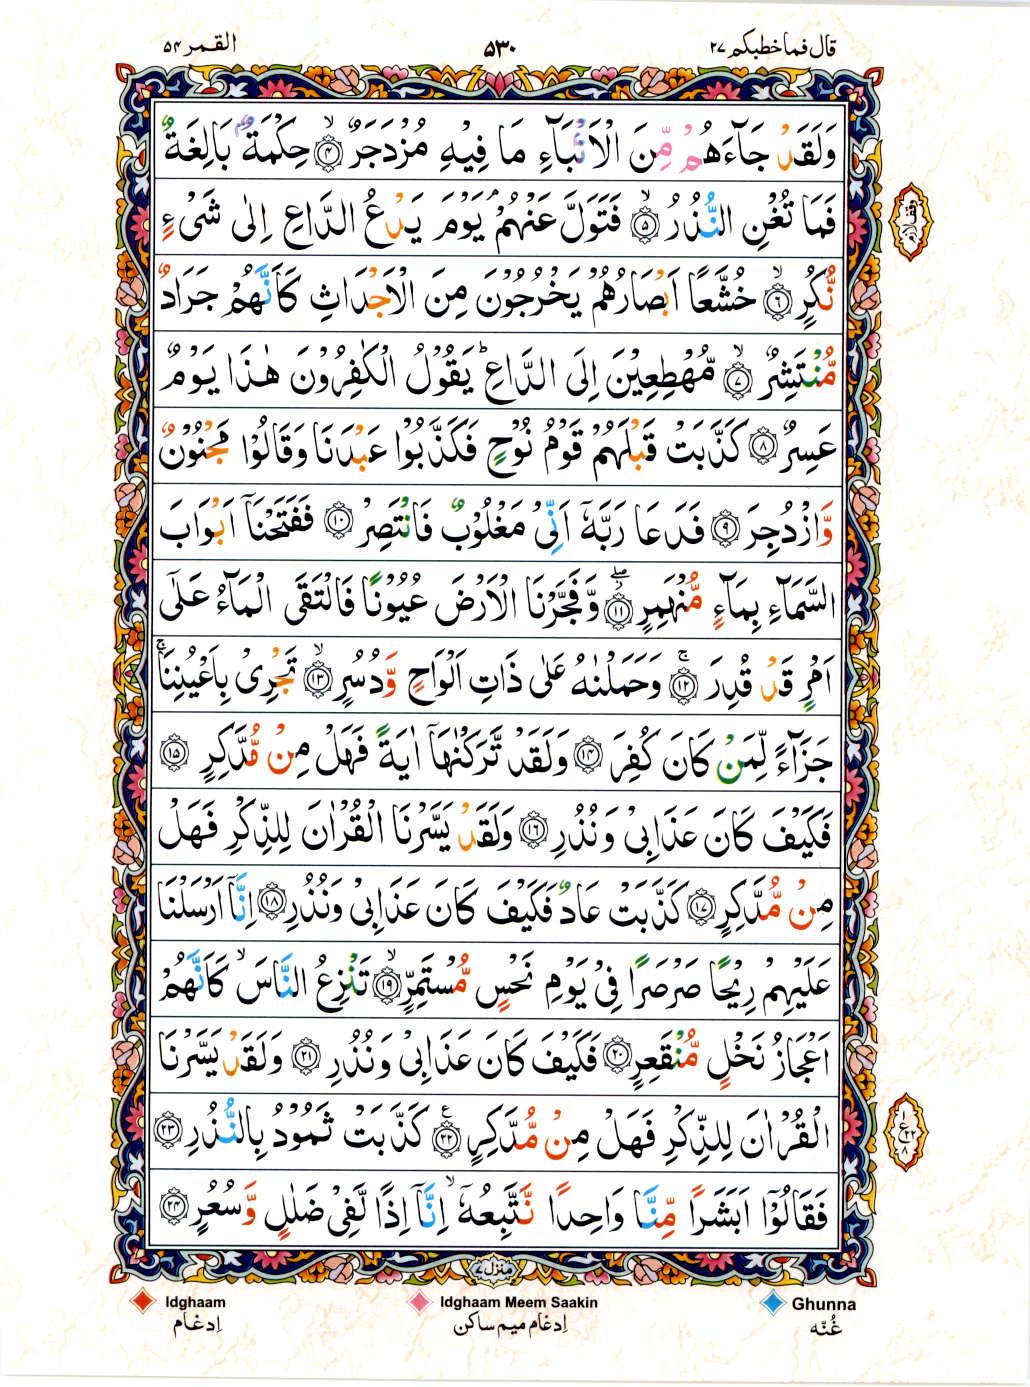 قال فما خطبكم ٢٧
٥٣٠
القمر ٥٤
وَلَقَدْ جَآءَهُمْ مِّنَ الْاَنْۢبَآءِ مَا فِيْهِ مُزْدَجَرٌ ۙ﴿۴﴾ حِكْمَةٌۢ بَالِغَةٌ
فَمَا تُغْنِ النُّذُرُ ۙ﴿۵﴾ فَتَوَلَّ عَنْهُمْ ۘ يَوْمَ يَدْعُ الدَّاعِ اِلٰى شَىْءٍ
نُّكُرٍ ۙ﴿۶﴾ خُشَّعًا اَبْصَارُهُمْ يَخْرُجُوْنَ مِنَ الْاَجْدَاثِ كَاَنَّهُمْ جَرَادٌ
مُّنْتَشِرٌ ۙ﴿۷﴾ مُّهْطِعِيْنَ اِلَى الدَّاعِ ؕ يَقُوْلُ الْكٰفِرُوْنَ هٰذَا يَوْمٌ
عَسِرٌ ﴿۸﴾ كَذَّبَتْ قَبْلَهُمْ قَوْمُ نُوْحٍ فَكَذَّبُوْا عَبْدَنَا وَقَالُوْا مَجْنُوْنٌ
وَّازْدُجِرَ ﴿۹﴾ فَدَعَا رَبَّهٗۤ اَنِّىْ مَغْلُوْبٌ فَانْتَصِرْ ﴿۱۰﴾ فَفَتَحْنَاۤ اَبْوَابَ
السَّمَآءِ بِمَآءٍ مُّنْهَمِرٍ ۖ﴿۱۱﴾ وَّفَجَّرْنَا الْاَرْضَ عُيُوْنًا فَالْتَقَى الْمَآءُ عَلٰٓى
اَمْرٍ قَدْ قُدِرَ ۚ﴿۱۲﴾ وَحَمَلْنٰهُ عَلٰى ذَاتِ اَلْوَاحٍ وَّدُسُرٍ ۙ﴿۱۳﴾ تَجْرِىْ بِاَعْيُنِنَا ۚ
جَزَآءً لِّمَنْ كَانَ كُفِرَ ﴿۱۴﴾ وَلَقَدْ تَّرَكْنٰهَاۤ اٰيَةً فَهَلْ مِنْ مُّدَّكِرٍ ﴿۱۵﴾
فَكَيْفَ كَانَ عَذَابِىْ وَنُذُرِ ﴿۱۶﴾ وَلَقَدْ يَسَّرْنَا الْقُرْاٰنَ لِلذِّكْرِ فَهَلْ
مِنْ مُّدَّكِرٍ ﴿۱۷﴾ كَذَّبَتْ عَادٌ فَكَيْفَ كَانَ عَذَابِىْ وَنُذُرِ ﴿۱۸﴾ اِنَّاۤ اَرْسَلْنَا
عَلَيْهِمْ رِيْحًا صَرْصَرًا فِىْ يَوْمِ نَحْسٍ مُّسْتَمِرٍّ ۙ﴿۱۹﴾ تَنْزِعُ النَّاسَ ۙ كَاَنَّهُمْ
اَعْجَازُ نَخْلٍ مُّنْقَعِرٍ ﴿۲۰﴾ فَكَيْفَ كَانَ عَذَابِىْ وَنُذُرِ ﴿۲۱﴾ وَلَقَدْ يَسَّرْنَا
الْقُرْاٰنَ لِلذِّكْرِ فَهَلْ مِنْ مُّدَّكِرٍ ﴿۲۲﴾ كَذَّبَتْ ثَمُوْدُ بِالنُّذُرِ ﴿۲۳﴾
فَقَالُوْۤا اَبَشَرًا مِّنَّا وَاحِدًا نَّتَّبِعُهٗۤ ۙ اِنَّاۤ اِذًا لَّفِىْ ضَلٰلٍ وَّسُعُرٍ ﴿۲۴﴾
وقف لازم
ع ٢٢ ٨
منزل ٧
Ghunna
غُنّه
Idghaam Meem Saakin
اِدغام میم ساکن
Idghaam
اِدغام